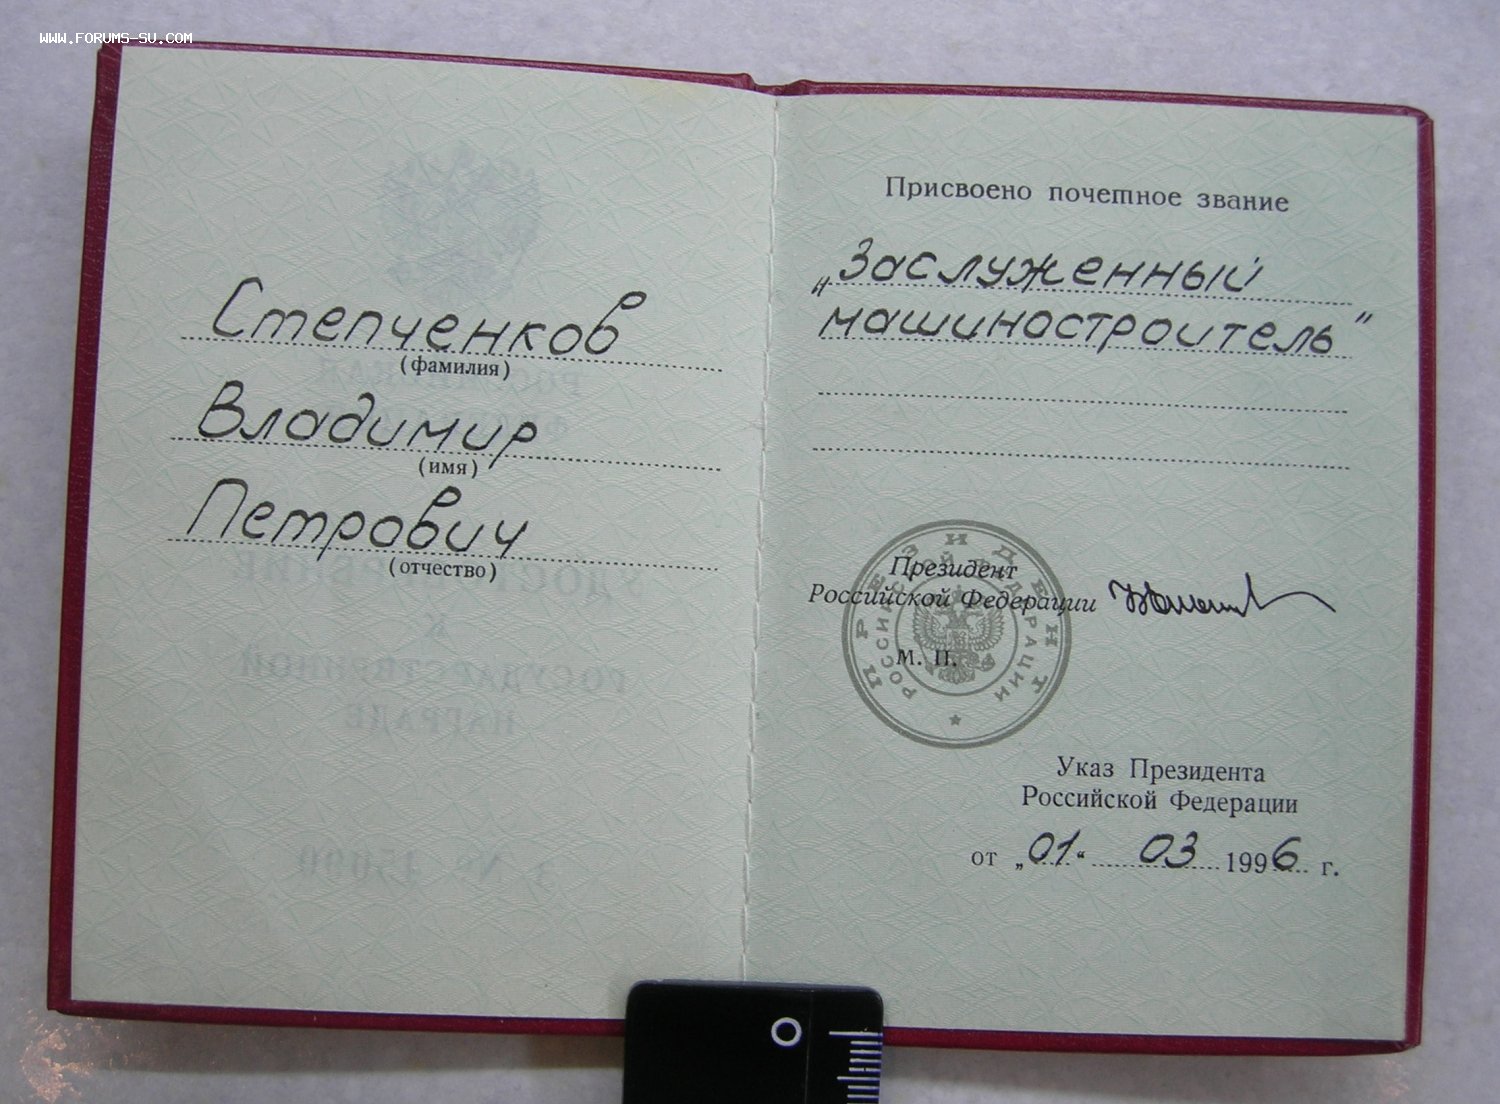 WWW.FORUMS-SU.COM
Степченков
(фамилия)
Владимир
(имя)
Петрович
(отчество)
Присвоено почетное звание
„Заслуженный
машиностроитель”
Президент
Российской Федерации
М. П.
ПРЕЗИДЕНТ
РОССИЙСКОЙ ФЕДЕРАЦИИ
Указ Президента
Российской Федерации
от „01“ 03 1996 г.